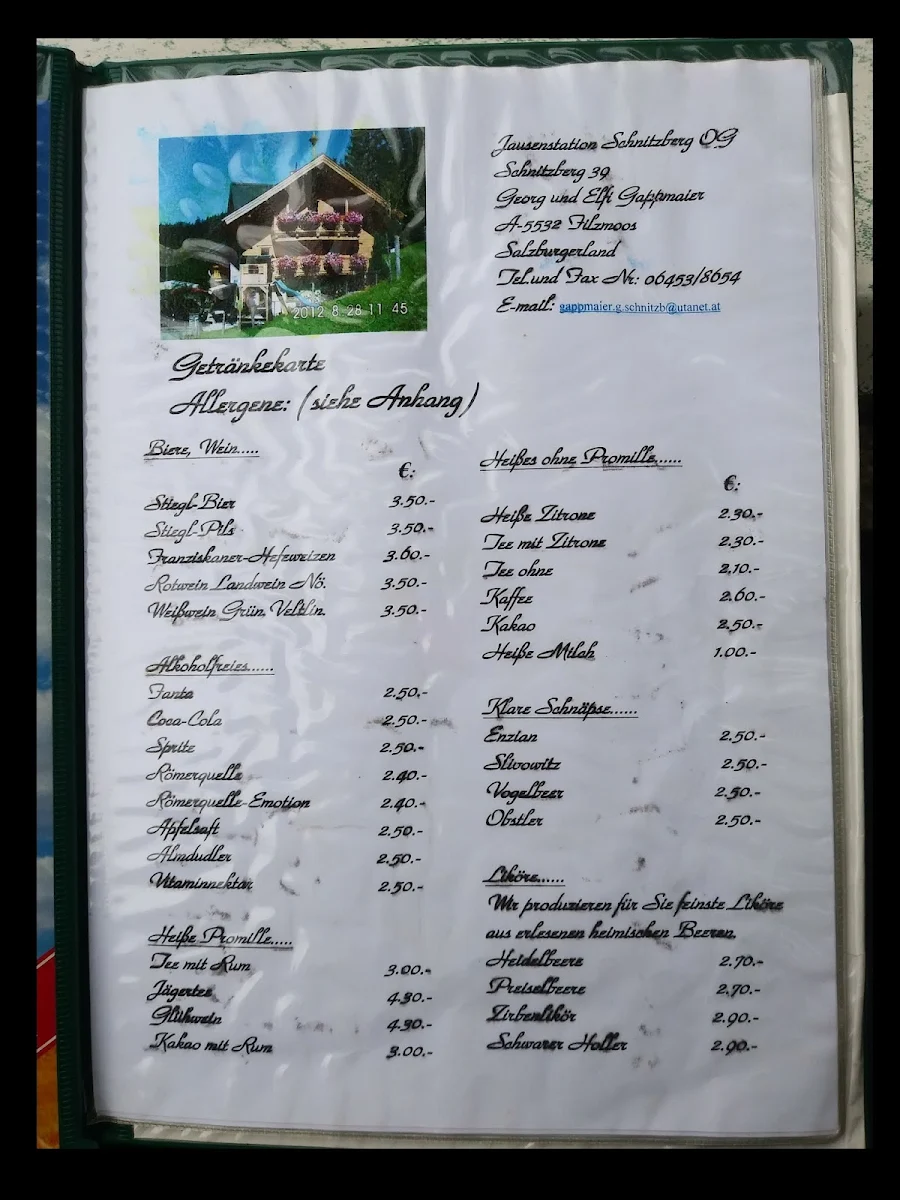 2012 8 28 11 45
Jausenstation Schnitzberg OG
Schnitzberg 39
Georg und Elfi Gappmaier
A-5532 Filzmoos
Salzburgerland
Tel.und Fax Nr: 06453/8654
E-mail: gappmaier.g.schnitzb@utanet.at
Getränkekarte
Allergene: (siehe Anhang)
Biere, Wein.....
€:
Stiegl-Bier 3.50.-
Stiegl-Pils 3.50.-
Franziskaner-Hefeweizen 3.60.-
Rotwein Landwein Nö. 3.50.-
Weißwein Grün. Veltlin. 3.50.-
Alkoholfreies......
Fanta 2.50.-
Coca-Cola 2.50.-
Sprite 2.50.-
Römerquelle 2.40.-
Römerquelle-Emotion 2.40.-
Apfelsaft 2.50.-
Almdudler 2.50.-
Vitaminnektar 2.50.-
Heiße Promille.....
Tee mit Rum 3.00.-
Jägertee 4.30.-
Glühwein 4.30.-
Kakao mit Rum 3.00.-
Heißes ohne Promille......
€:
Heiße Zitrone 2.30.-
Tee mit Zitrone 2.30.-
Tee ohne 2.10.-
Kaffee 2.60.-
Kakao 2.50.-
Heiße Milch 1.00.-
Klare Schnäpse......
Enzian 2.50.-
Slivowitz 2.50.-
Vogelbeer 2.50.-
Obstler 2.50.-
Liköre......
Wir produzieren für Sie feinste Liköre
aus erlesenen heimischen Beeren.
Heidelbeere 2.70.-
Preiselbeere 2.70.-
Zirbenlikör 2.90.-
Schwarer Holler 2.90.-